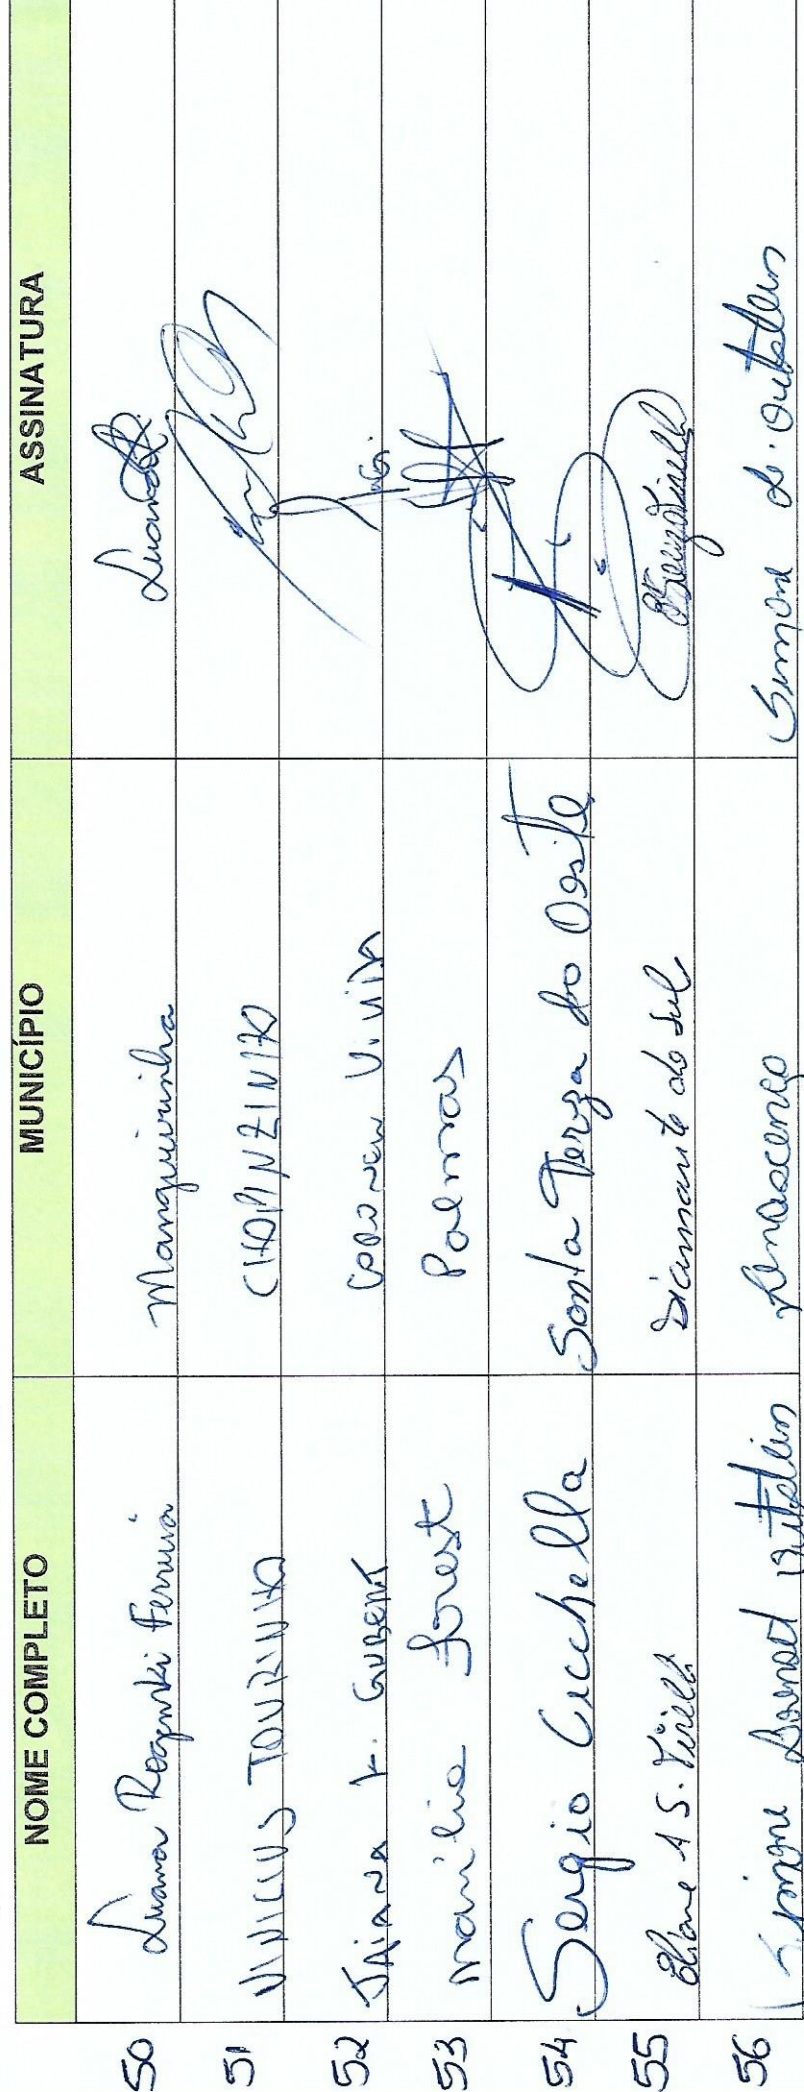 NOME COMPLETO MUNICÍPIO ASSINATURA
50 Luana Ferreira Mangueirinha Luana
51 VINICIUS TOURINHO CHOPINZINHO
52 JAIANA F. GUBERT CORONEL VIVIDA
53 Marília Forest Palmas
54 Sergio Cicchella Santa Tereza do Oeste
55 Eliane A S. Tirelli Diamante do Sul
56 Simone Renascença Simone